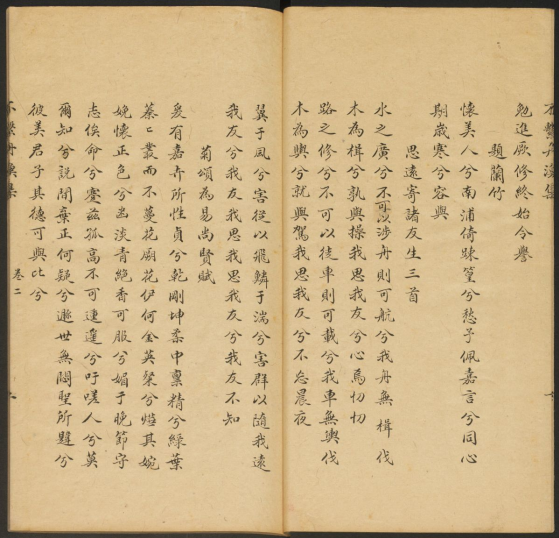 勉進厥修終始令譽
題蘭竹
懷美人兮南浦倚踈篁兮愁予佩嘉言兮同心
期歲寒兮容與
思遠寄諸友生三首
水之廣兮不可以涉舟則可航兮我舟無楫伐
木為楫兮孰與操我思我友兮心焉忉忉
路之修兮不可以徒車則可載兮我車無輿伐
木為輿兮就與駕我思我友兮不忘晨夜
翼于風兮害從以飛鱗于湍兮害群以隨我遠
我友兮我友我思我思我友兮我友不知
菊頌為易尚賢賦
爰有嘉卉所性貞兮乾剛坤柔中稟精兮綠葉
蓁〻叢而不蔓花廟花伊何金英粲兮熺其婉
娩懷正色兮出淡青絶香可服兮媚于晚節守
志俟命兮蹇茲孤高不可連選兮吁嗟人兮莫
爾知兮説閒葉正何疑兮遯世無悶聖所題兮
彼美君子其德可與比兮
卷二